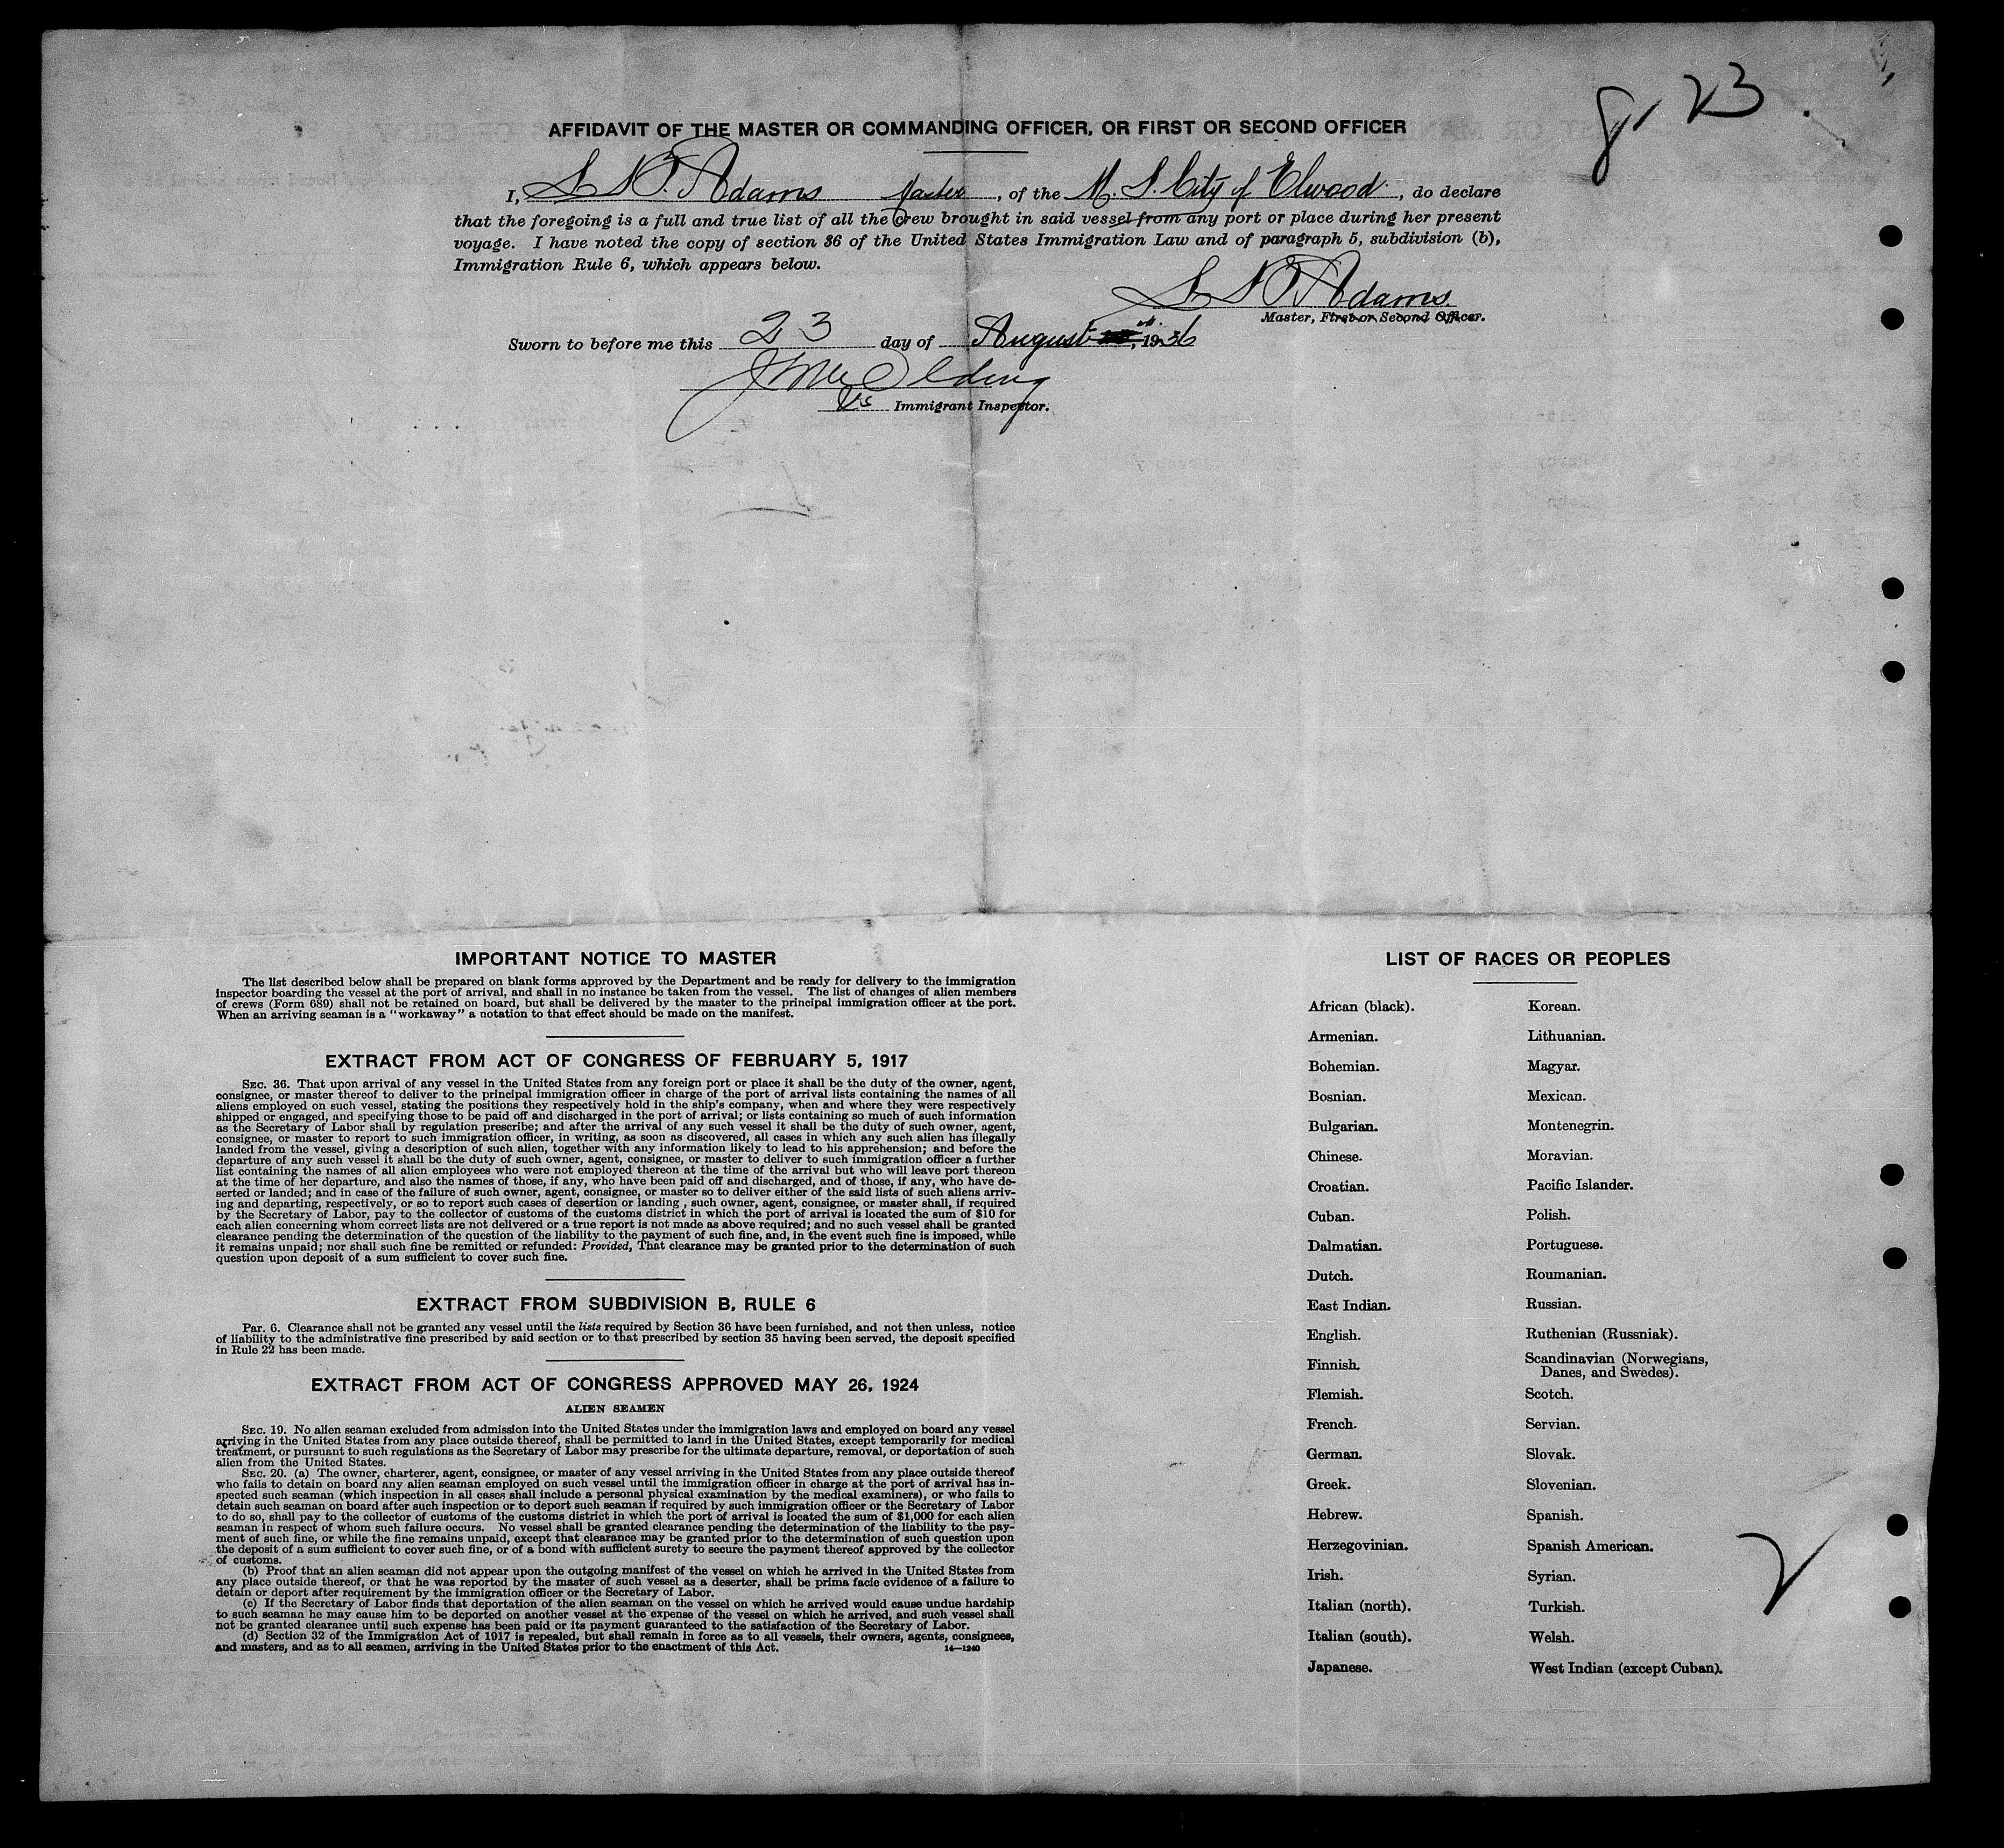 23
AFFIDAVIT OF THE MASTER OR COMMANDING OFFICER, OR FIRST OR SECOND OFFICER
I, Adams Master, of the M. S. City of Elwood, do declare
that the foregoing is a full and true list of all the crew brought in said vessel from any port or place during her present
voyage. I have noted the copy of section 36 of the United States Immigration Law and of paragraph 5, subdivision (b),
Immigration Rule 6, which appears below.
Adams.
Master, First or Second Officer.
Sworn to before me this 23 day of August, 1936
Olding
US Immigrant Inspector.
IMPORTANT NOTICE TO MASTER
The list described below shall be prepared on blank forms approved by the Department and be ready for delivery to the immigration
inspector boarding the vessel at the port of arrival, and shall in no instance be taken from the vessel. The list of changes of alien members
of crews (Form 689) shall not be retained on board, but shall be delivered by the master to the principal immigration officer at the port.
When an arriving seaman is a "workaway" a notation to that effect should be made on the manifest.
EXTRACT FROM ACT OF CONGRESS OF FEBRUARY 5, 1917
SEC. 36. That upon arrival of any vessel in the United States from any foreign port or place it shall be the duty of the owner, agent,
consignee, or master thereof to deliver to the principal immigration officer in charge of the port of arrival lists containing the names of all
aliens employed on such vessel, stating the positions they respectively hold in the ship's company, when and where they were respectively
shipped or engaged, and specifying those to be paid off and discharged in the port of arrival; or lists containing so much of such information
as the Secretary of Labor shall by regulation prescribe; and after the arrival of any such vessel it shall be the duty of such owner, agent,
consignee, or master to report to such immigration officer, in writing, as soon as discovered, all cases in which any such alien has illegally
landed from the vessel, giving a description of such alien, together with any information likely to lead to his apprehension; and before the
departure of any such vessel it shall be the duty of such owner, agent, consignee, or master to deliver to such immigration officer a further
list containing the names of all alien employees who were not employed thereon at the time of the arrival but who will leave port thereon
at the time of her departure, and also the names of those, if any, who have been paid off and discharged, and of those, if any, who have de-
serted or landed; and in case of the failure of such owner, agent, consignee, or master so to deliver either of the said lists of such aliens arriv-
ing and departing, respectively, or so to report such cases of desertion or landing , such owner, agent, consignee, or master shall, if required
by the Secretary of Labor, pay to the collector of customs of the customs district in which the port of arrival is located the sum of $10 for
each alien concerning whom correct lists are not delivered or a true report is not made as above required; and no such vessel shall be granted
clearance pending the determination of the question of the liability to the payment of such fine, and, in the event such fine is imposed, while
it remains unpaid; nor shall such fine be remitted or refunded: Provided, That clearance may be granted prior to the determination of such
question upon deposit of a sum sufficient to cover such fine.
EXTRACT FROM SUBDIVISION B, RULE 6
PAR. 6. Clearance shall not be granted any vessel until the lists required by Section 36 have been furnished, and not then unless, notice
of liability to the administrative fine prescribed by said section or to that prescribed by section 35 having been served, the deposit specified
in Rule 22 has been made.
EXTRACT FROM ACT OF CONGRESS APPROVED MAY 26, 1924
ALIEN SEAMEN
SEC. 19. No alien seaman excluded from admission into the United States under the immigration laws and employed on board any vessel
arriving in the United States from any place outside thereof, shall be permitted to land in the United States, except temporarily for medical
treatment, or pursuant to such regulations as the Secretary of Labor may prescribe for the ultimate departure, removal, or deportation of such
alien from the United States.
SEC. 20. (a) The owner, charterer, agent, consignee, or master of any vessel arriving in the United States from any place outside thereof
who fails to detain on board any alien seaman employed on such vessel until the immigration officer in charge at the port of arrival has in-
spected such seaman (which inspection in all cases shall include a personal physical examination by the medical examiners), or who fails to
detain such seaman on board after such inspection or to deport such seaman if required by such immigration officer or the Secretary of Labor
to do so, shall pay to the collector of customs of the customs district in which the port of arrival is located the sum of $1,000 for each alien
seaman in respect of whom such failure occurs. No vessel shall be granted clearance pending the determination of the liability to the pay-
ment of such fine, or while the fine remains unpaid, except that clearance may be granted prior to the determination of such question upon
the deposit of a sum sufficient to cover such fine, or of a bond with sufficient surety to secure the payment thereof approved by the collector
of customs.
(b) Proof that an alien seaman did not appear upon the outgoing manifest of the vessel on which he arrived in the United States from
any place outside thereof, or that he was reported by the master of such vessel as a deserter, shall be prima facie evidence of a failure to
detain or deport after requirement by the immigration officer or the Secretary of Labor.
(c) If the Secretary of Labor finds that deportation of the alien seaman on the vessel on which he arrived would cause undue hardship
to such seaman he may cause him to be deported on another vessel at the expense of the vessel on which he arrived, and such vessel shall
not be granted clearance until such expense has been paid or its payment guaranteed to the satisfaction of the Secretary of Labor.
(d) Section 32 of the Immigration Act of 1917 is repealed, but shall remain in force as to all vessels, their owners, agents, consignees,
and masters, and as to all seamen, arriving in the United States prior to the enactment of this Act. 14—1240
LIST OF RACES OR PEOPLES
African (black).
Armenian.
Bohemian.
Bosnian.
Bulgarian.
Chinese.
Croatian.
Cuban.
Dalmatian.
Dutch.
East Indian.
English.
Finnish.
Flemish.
French.
German.
Greek.
Hebrew.
Herzegovinian.
Irish.
Italian (north).
Italian (south).
Japanese.
Korean.
Lithuanian.
Magyar.
Mexican.
Montenegrin.
Moravian.
Pacific Islander.
Polish.
Portuguese.
Roumanian.
Russian.
Ruthenian (Russniak).
Scandinavian (Norwegians,
Danes, and Swedes).
Scotch.
Servian.
Slovak.
Slovenian.
Spanish.
Spanish American.
Syrian.
Turkish.
Welsh.
West Indian (except Cuban).